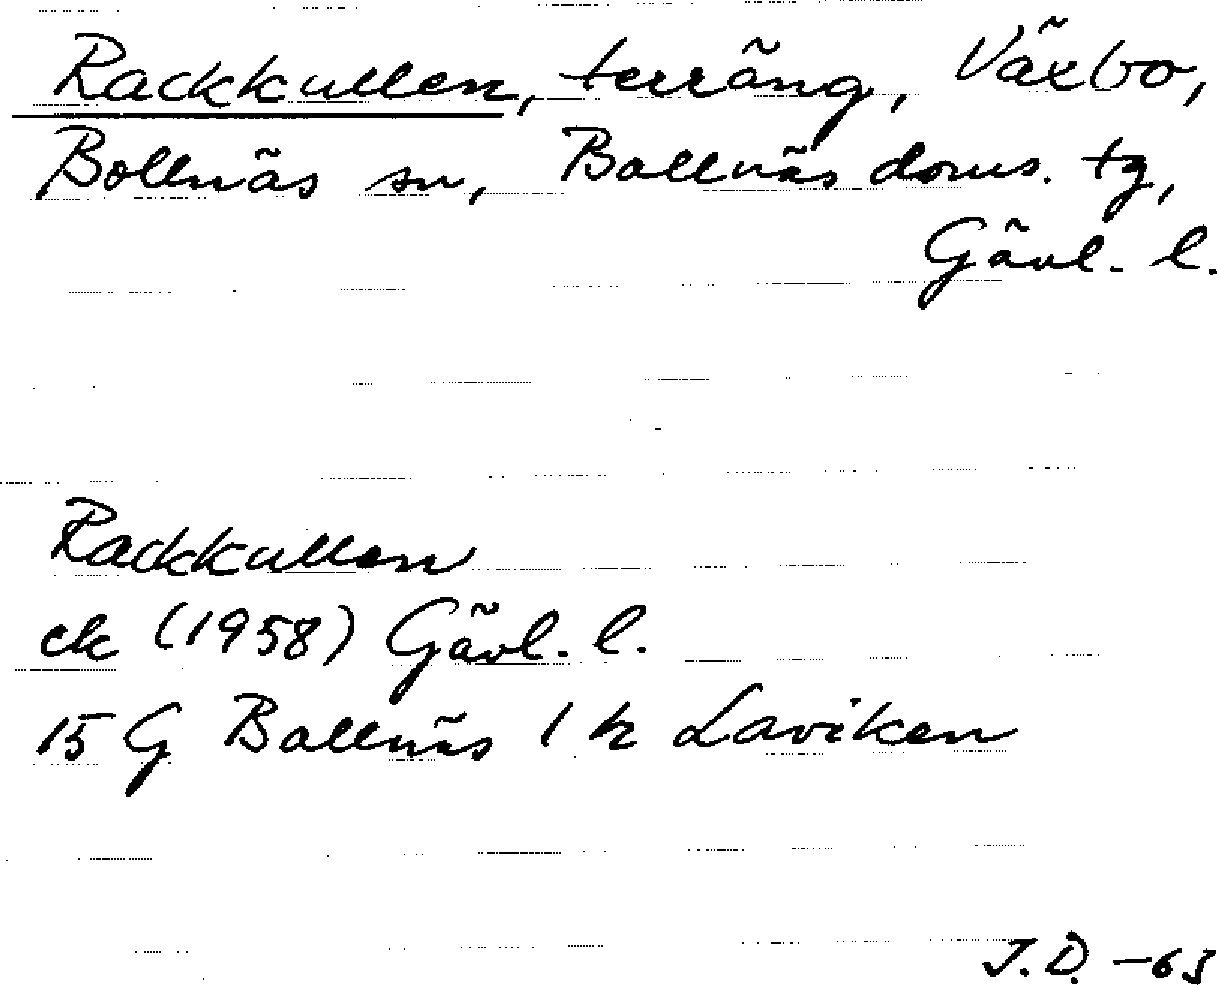 Rackkullen, terräng, Växbo,
Bollnäs sn, Bollnäs doms. tg,
Gävl. l.
Rackkullen
ek (1958) Gävl. l.
15 G Bollnäs 1 h Laviken
J.D. -63